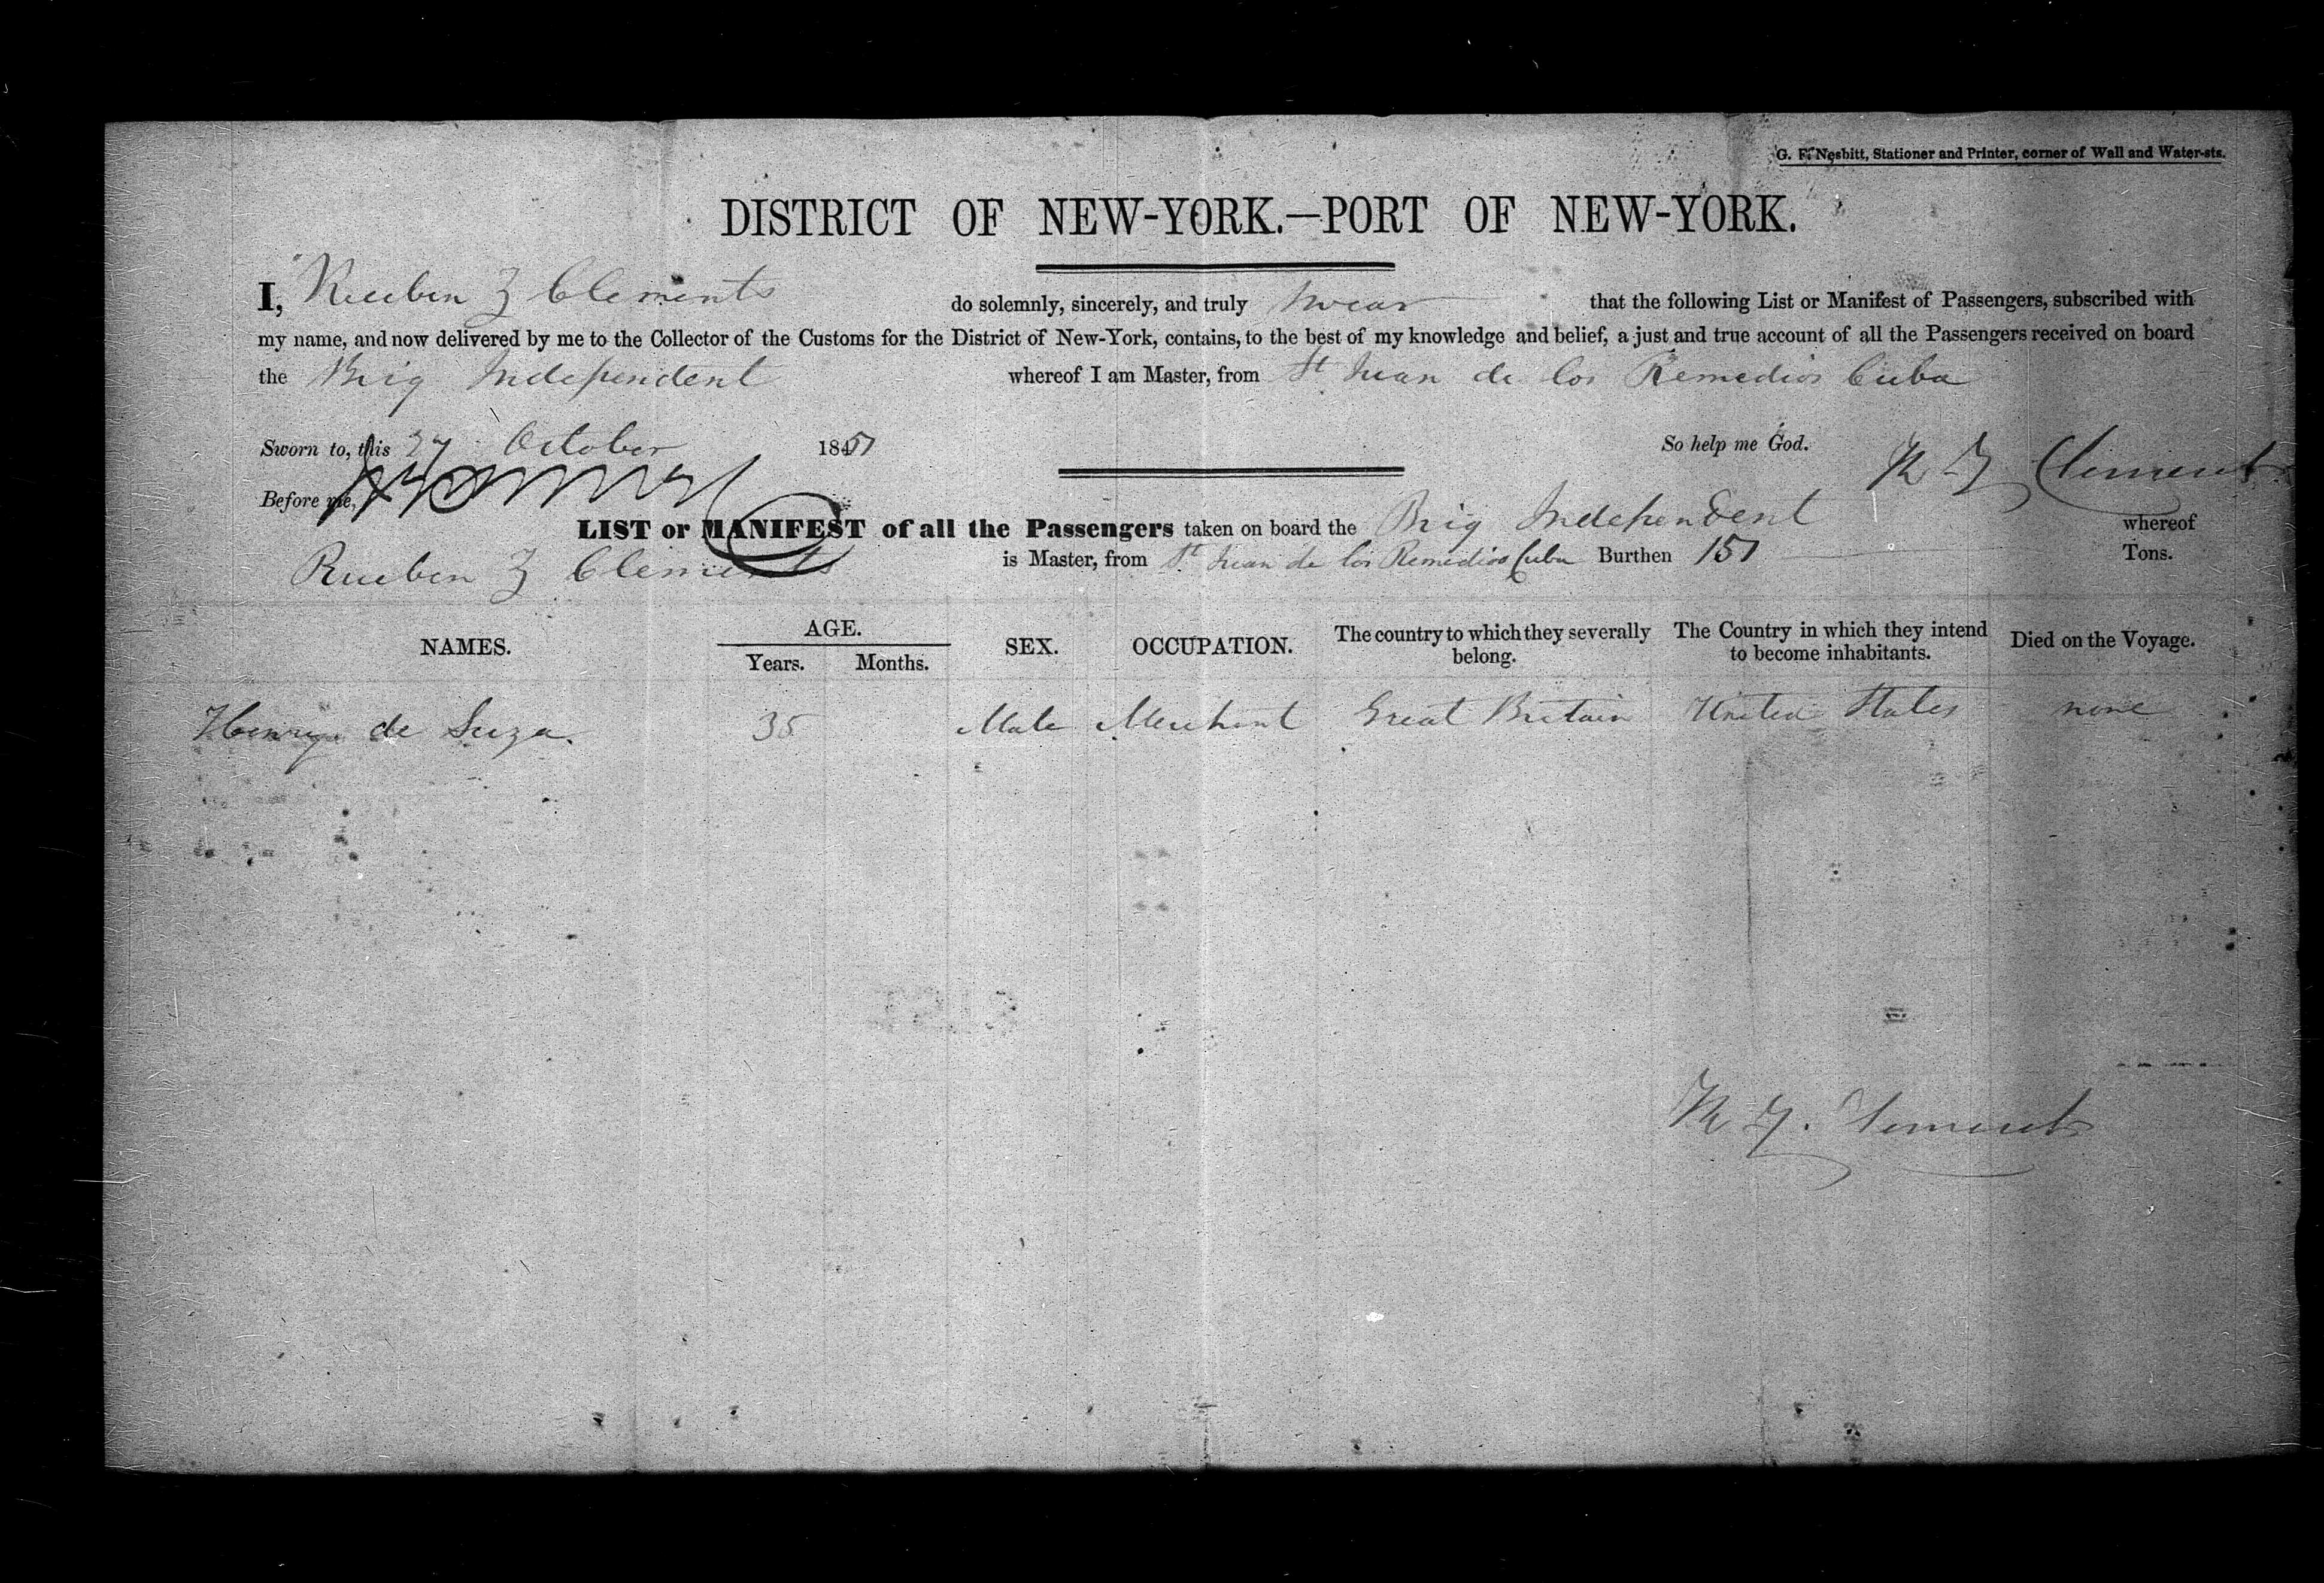 G. F. Nesbitt, Stationer and Printer, corner of Wall and Water-sts.
DISTRICT OF NEW-YORK.—PORT OF NEW-YORK.
I, Rueben Z Clements do solemnly, sincerely, and truly swear that the following List or Manifest of Passengers, subscribed with
my name, and now delivered by me to the Collector of the Customs for the District of New-York, contains, to the best of my knowledge and belief, a just and true account of all the Passengers received on board
the Brig Independent whereof I am Master, from St Juan de los Remedios Cuba
Sworn to, this 27 October 1847 So help me God. R Z Clements
Before me,
LIST or MANIFEST of all the Passengers taken on board the Brig Independent whereof
Rueben Z Clements is Master, from St Juan de los Remedios Cuba Burthen 157 Tons.
NAMES. AGE. Years. Months. SEX. OCCUPATION. The country to which they severally belong. The Country in which they intend to become inhabitants. Died on the Voyage.
Henry de Suza. 35 Male Merchant Great Britain United States none
R Z. Clements